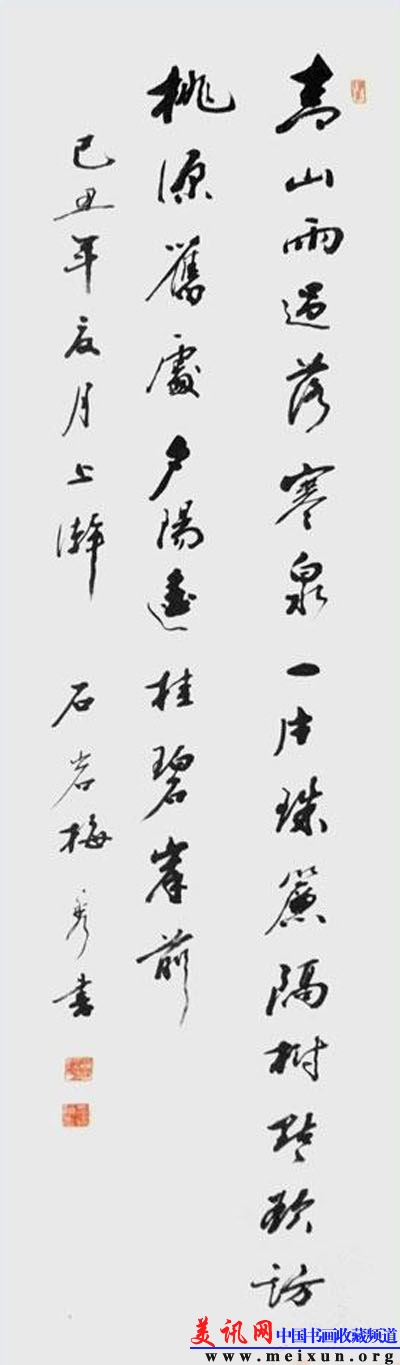 青山雨過落寒泉一片珠簾隔樹懸欲訪
桃源舊處夕陽遥挂碧峯前
己丑年夏月上澣 石岩梅秀書
美讯网 中国书画收藏频道
www.meixun.org